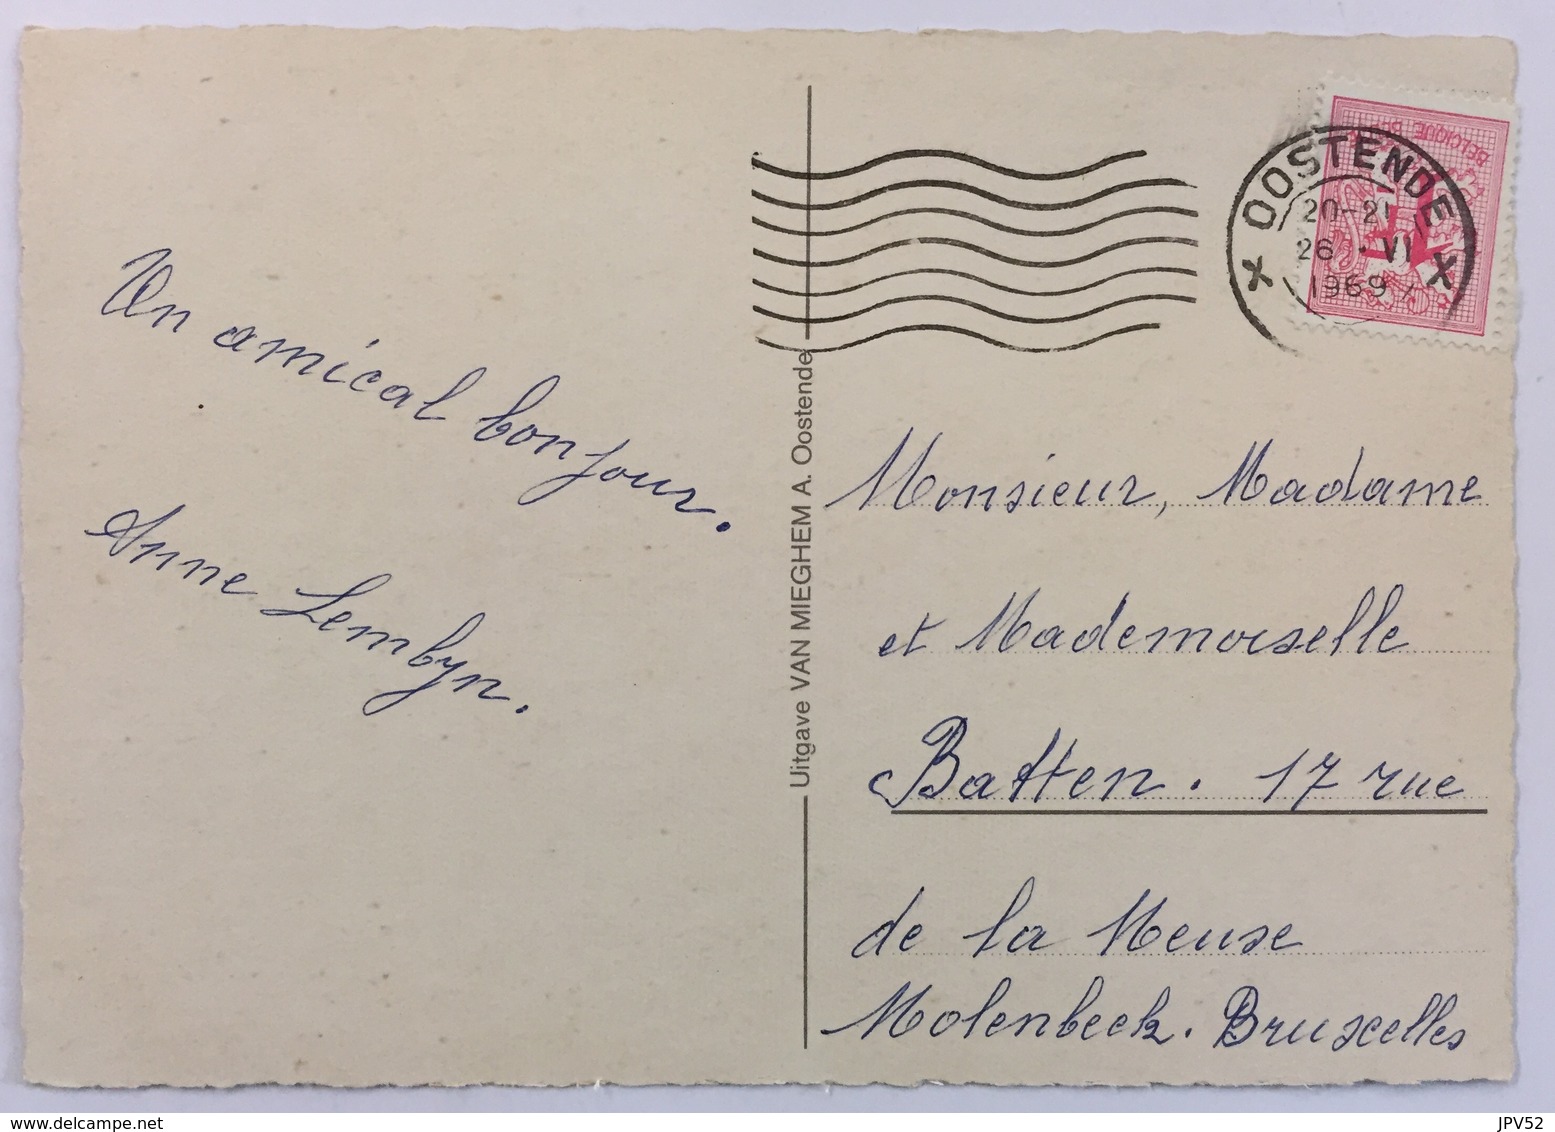 Un amical bonjour.
Anne Lembyn.
Uitgave VAN MIEGHEM A. Oostende
BELGIQUE
OOSTENDE
20-21
26 · VI
1969
X X
Monsieur, Madame
et Mademoiselle
Batten. 17 rue
de la Meuse
Molenbeek. Bruxelles
delcampe.net
JPV52